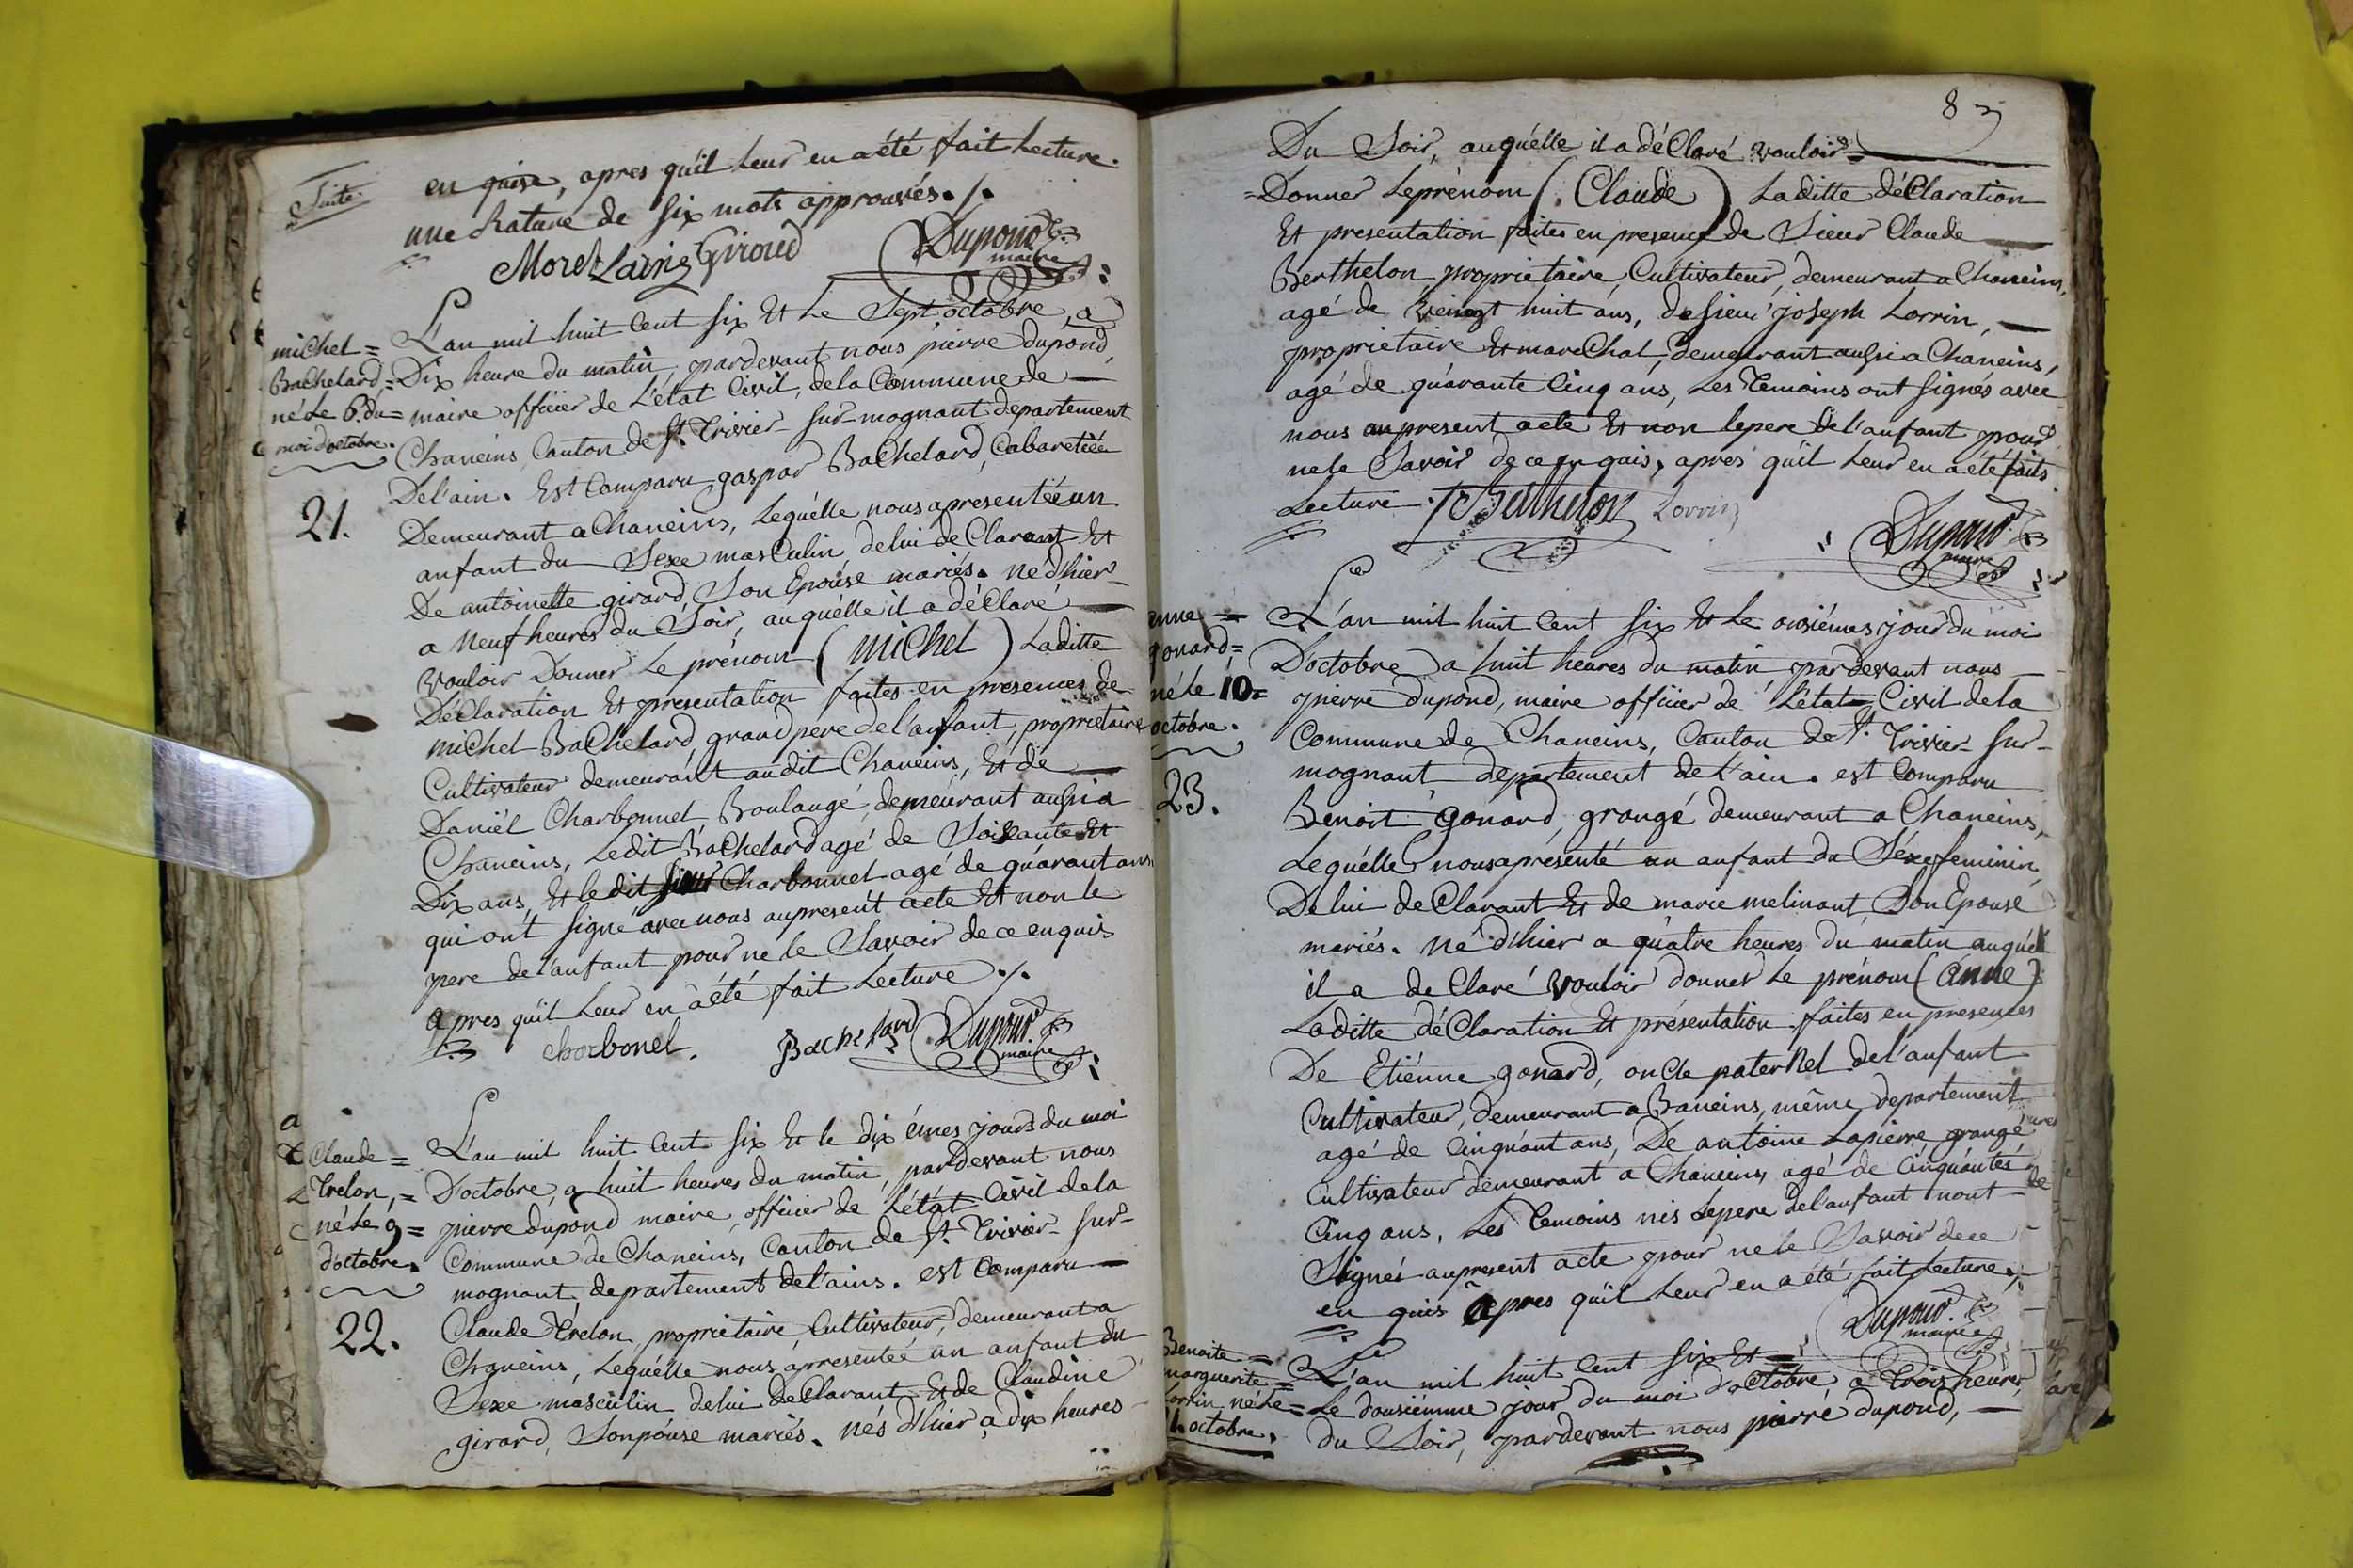 Suite
en quise, apres qu'il leur en a été fait Lecture.
une Rature de six mots approuvés ./.
Morel Lainé Giroud Dupond
maire
michel =
Bachelard, =
né le 6. du =
moi d'octobre.
21.
L'an mil huit Cent six Et Le Sept octobre, a
Dix heure du matin, pardevant nous pierre Dupond
maire officier de L'état Civil, de la Commune de
Chaneins, Canton de St. Trivier sur mognant, departement
De l'ain. Est Comparu gaspar Bachelard, Cabaretiée
Demeurant a Chaneins, Lequélle nous apresentée un
anfant du Sexe masculin, de lui de Clarant Et
De antoinette girard, Son Epouse mariés. né d'hier
a Neuf heures du Soir, auquélle il a déClaré
vouloir Donner Le prénom (michel) Laditte
DéClaration Et presentation faites en presences de
michel Bachelard, grand pere de l'anfant, proprietaire
Cultivateur demeurant audit Chaneins, Et de
Daniél Charbonnet Boulangé, demeurant aussi a
Chaneins, Ledit Bachelard agé de Soixante Et
Dix ans, Et le dit sieur Charbonnet agé de quarant ans
qui ont signé avec nous au present acte Et non le
pere de l'anfant pour ne le Savoir de ce enquis
apres qu'il Leur en a été fait Lecture ./.
Chorbonel. Bachelard Dupond
maire
Claude =
Trelon, =
né Le 9 =
d'octobre.
22.
L'an mil huit Cent six Et le dix émes jours du moi
D'octobre, a huit heures du matin, pardevant nous
pierre dupond maire, officier de L'état Civil de la
Commune de Chaneins, Canton de St. Trivier sur
mognant, departement de l'ains. est Comparu
Claude Trélon, propriétaire Cultivateur, demeurant a
Chaneins, Lequélle nous apresenteé un anfant du
Sexe masculin de lui DeClarant Et de Claudine
girard, Son pouse mariés. nés d'hier a dix heures
83
Du Soir, auquélle il a déClaré vouloir =
= Donner Le prénom (Claude) Laditte déClaration
Et presentation faites en presence de Sieur Claude
Berthelon, proprietaire, Cultivateur, demeurant a Chaneins,
agé de Veingt huit ans, de sieur joseph Lorrin,
proprietaire Et mareChal, demeurant aussi a Chaneins,
agé de quarante Cinq ans, Les Temoins ont signés avec
nous au present acte Et non le pere de l'anfant pour
ne le Savoir de ce en quis, apres qu'il Leur en a été faits
Lecture ./. Berthelon Lorrin
Dupond
maire
anne =
gonard =
né le 10 =
octobre.
23.
L'an mil huit Cent six Et Le onsiémes jour du moi
D'octobre a huit heures du matin, pardevant nous
pierre dupond, maire officier de L'état Civil de la
Commune de Chaneins, Canton de St. Trivier sur
mognant, departement de L'ain. est Comparu
Benoit gonard, grangé demeurant a Chaneins,
Lequélle nous apresenté un anfant du Séxe feminin,
De lui de Clarant Et de marie melinant, Son Epouse
mariés. né d'hier a quatre heures du matin auquél
il a de Claré vouloir donner Le prénom (anne)
Laditte déClaration Et présentation faites en presences
De Etiénne gonard, oncle paternel de l'anfant
Cultivateur, demeurant a Baneins, même departement
agé de Cinquant ans, De antoine Lapierre grangé
Cultivateur demeurant a Chaneins, agé de Cinquantés
Cinq ans, Les Temoins nis Le pere de l'anfant nont
Signés au present acte pour ne le Savoir de ce
en quis apres qu'il Leur en a été fait Lecture,
Dupond
maire
Benoite =
marguerite =
Lorrin né Le =
octobre.
L'an mil huit Cent six Et =
Le dousiémme jour du moi d'octobre a Trois heures
du Soir, pardevant nous pierre dupond,